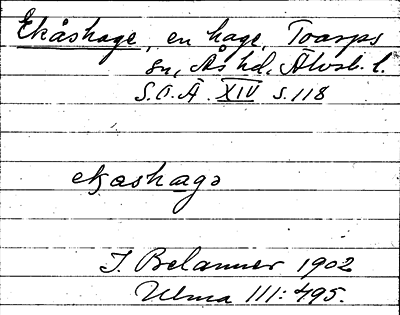 Ekåshage, en hage, Toarps
sn, Ås hd, Älvsb. l.
S.O.Ä. XIV s. 118
ekashagə
J. Belanner 1902
Ulma III: 495.